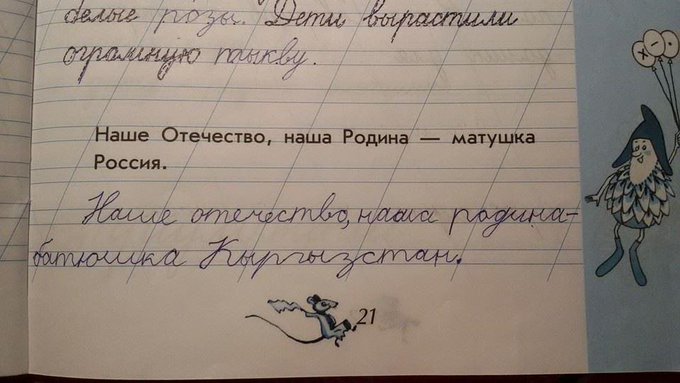 белые розы. Дети вырастили
огромную тыкву.
Наше Отечество, наша Родина — матушка
Россия.
Наше отечество, наша родина-
батюшка Кыргызстан.
21